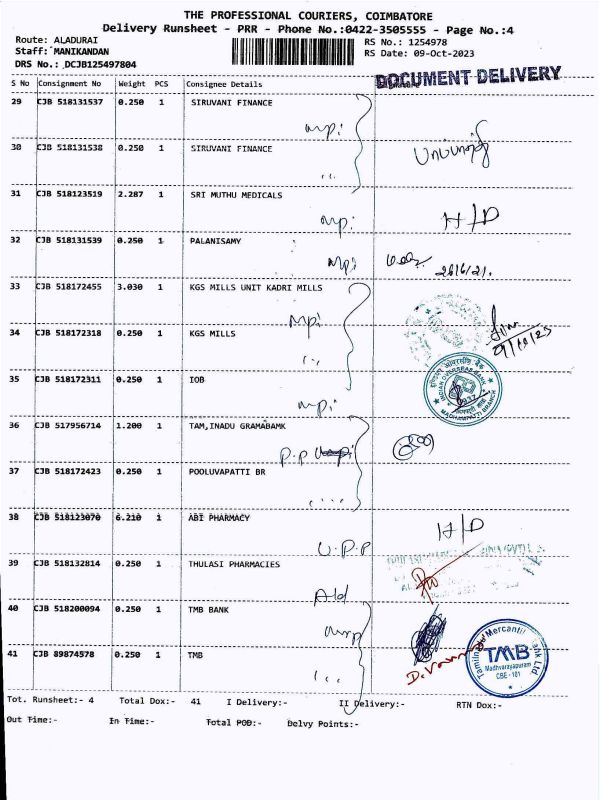 THE PROFESSIONAL COURIERS, COIMBATORE
Delivery Runsheet - PRR - Phone No.:0422-3505555 - Page No.:4
Route: ALADURAI
RS No.: 1254978
Staff: MANIKANDAN
RS Date: 09-Oct-2023
DRS No.: DCJB125497804
DOCUMENT DELIVERY
S No Consignment No Weight PCS Consignee Details
29 CJB 518131537 0.250 1 SIRUVANI FINANCE
mpi
30 CJB 518131538 0.250 1 SIRUVANI FINANCE
31 CJB 518123519 2.287 1 SRI MUTHU MEDICALS
mpi H/D
32 CJB 518131539 0.250 1 PALANISAMY
mpi
33 CJB 518172455 3.030 1 KGS MILLS UNIT KADRI MILLS
mpi
34 CJB 518172318 0.250 1 KGS MILLS
35 CJB 518172311 0.250 1 IOB
mpi
INDIAN OVERSEAS BANK
MADHAPATTI BRANCH
36 CJB 517956714 1.200 1 TAM,INADU GRAMABAMK
P.P
37 CJB 518172423 0.250 1 POOLUVAPATTI BR
38 CJB 518123070 6.210 1 ABI PHARMACY
U.P.P H/D
39 CJB 518132814 0.250 1 THULASI PHARMACIES
Ald
40 CJB 518200094 0.250 1 TMB BANK
Tamilnad Mercantile Bank Ltd
TMB
Madhvarayapuram
CBE - 101
41 CJB 89874578 0.250 1 TMB
Tot. Runsheet:- 4 Total Dox:- 41 I Delivery:- II Delivery:- RTN Dox:-
Out Time:- In Time:- Total POD:- Delvy Points:-